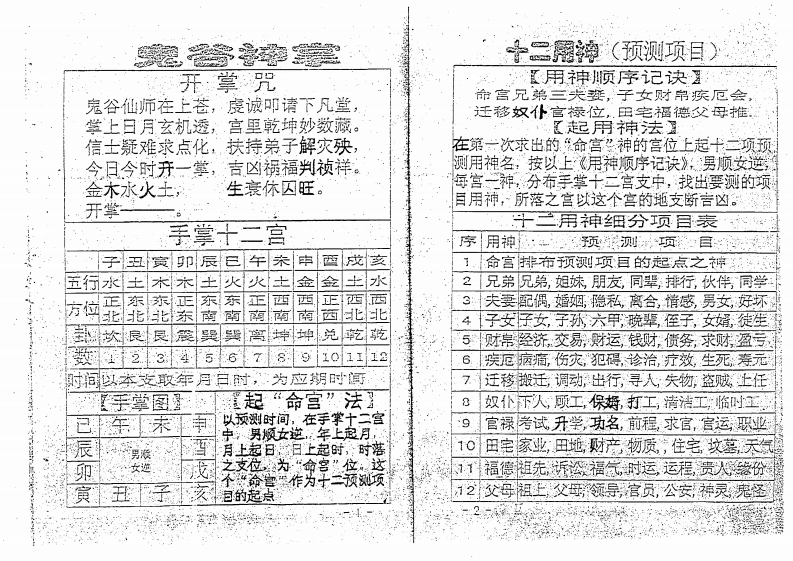 鬼谷神掌
开掌咒
鬼谷仙师在上苍，虔诚叩请下凡堂，
掌上日月玄机透，宫里乾坤妙数藏。
信士疑难求点化，扶持弟子解灾殃，
今日今时开一掌，吉凶祸福判祯祥。
金木水火土， 生衰休囚旺。
开掌———。
手掌十二宫
子 丑 寅 卯 辰 巳 午 未 申 酉 戌 亥
五行 水 土 木 木 土 火 火 土 金 金 土 水
方位 正北 东北 东北 正东 东南 东南 正南 西南 西南 正西 西北 西北
卦 坎 艮 艮 震 巽 巽 离 坤 坤 兑 乾 乾
数 1 2 3 4 5 6 7 8 9 10 11 12
时间 以本支取年月日时，为应期时间
【手掌图】
巳 午 未 申
辰 酉
男顺
女逆
卯 戌
寅 丑 子 亥
【起“命宫”法】
以预测时间，在手掌十二宫
中，男顺女逆，年上起月，
月上起日，日上起时，时落
之支位，为“命宫”位。这
个“命宫”作为十二预测项
目的起点
- 1 -
十二用神（预测项目）
【用神顺序记诀】
命宫兄弟三夫妻，子女财帛疾厄会，
迁移奴仆官禄位，田宅福德父母推。
【起用神法】
在第一次求出的“命宫”神的宫位上起十二项预
测用神名，按以上《用神顺序记诀》，男顺女逆，
每宫一神，分布手掌十二宫支中，找出要测的项
目用神，所落之宫以这个宫的地支断吉凶。
十二用神细分项目表
序 用神 预测项目
1 命宫 排布预测项目的起点之神
2 兄弟 兄弟，姐妹，朋友，同辈，排行，伙伴，同学
3 夫妻 配偶，婚姻，隐私，离合，情感，男女，好坏
4 子女 子女，子孙，六甲，晚辈，侄子，女婿，徒生
5 财帛 经济，交易，财运，钱财，债务，求财，盈亏
6 疾厄 病痛，伤灾，犯碍，诊治，疗效，生死，寿元
7 迁移 搬迁，调动，出行，寻人，失物，盗贼，上任
8 奴仆 下人，顾工，保姆，打工，清洁工，临时工
9 官禄 考试，升学，功名，前程，求官，官运，职业
10 田宅 家业，田地，财产，物质，，住宅，坟墓，天气
11 福德 祖先，诉讼，福气，时运，运程，贵人，缘份
12 父母 祖上，父母，领导，官员，公安，神灵，鬼怪
- 2 -